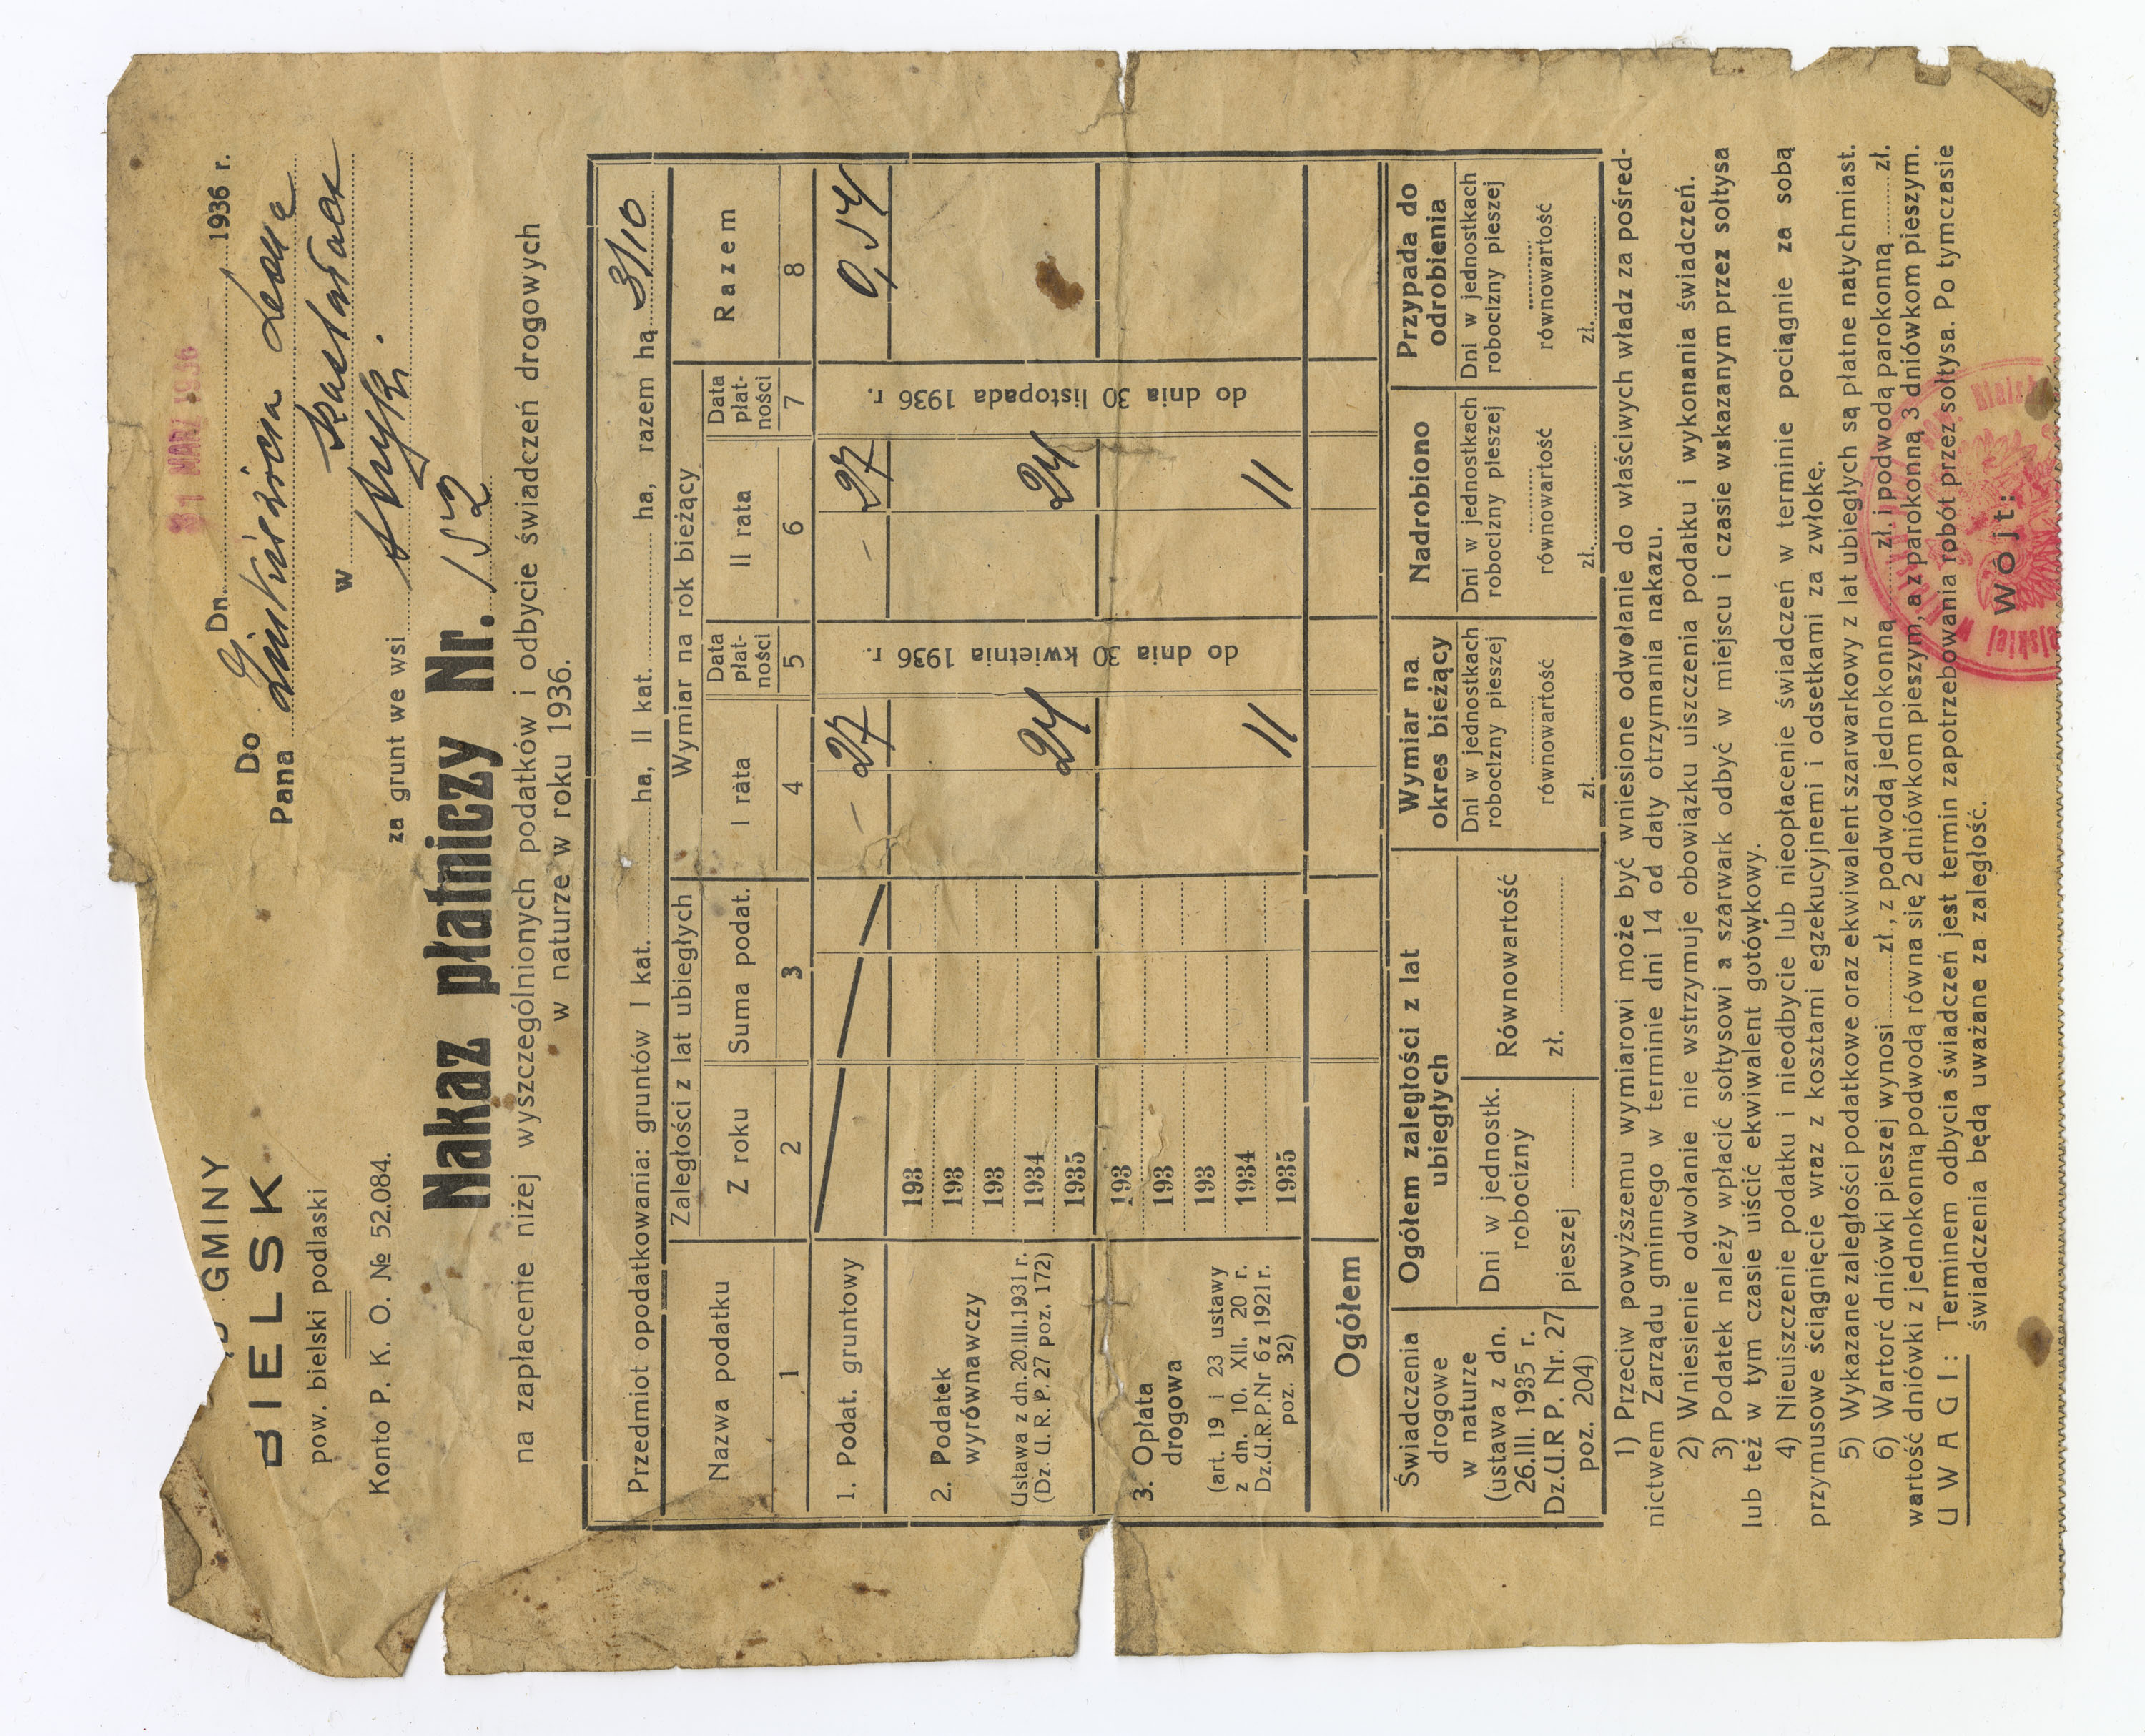 GMINY
BIELSK
pow. bielski podlaski
Konto P. K. O. № 52.084.
31 MARZ 1936
Dn. 1936 r.
Do
Pana
w
za grunt we wsi Stryki.
Nakaz płatniczy Nr. 152
na zapłacenie niżej wyszczególnionych podatków i odbycie świadczeń drogowych
w naturze w roku 1936.
Przedmiot opodatkowania: gruntów I kat. ha, II kat. ha, razem hą 3/10
Nazwa podatku
Zaległości z lat ubiegłych
Wymiar na rok bieżący
Razem
Z roku
Suma podat.
I rata
Data płat-ności
II rata
Data płat-ności
1 2 3 4 5 6 7 8
1. Podat. gruntowy — 27 — 27 0,54
2. Podatek
wyrównawczy
Ustawa z dn. 20.III.1931 r.
(Dz. U. R. P. 27 poz. 172)
193
193
193
1934
1935
24 24
3. Opłata
drogowa
(art. 19 i 23 ustawy
z dn. 10. XII. 20 r.
Dz.U.R.P.Nr 6 z 1921 r.
poz. 32)
193
193
193
1934
1935
11 11
do dnia 30 kwietnia 1936 r.
do dnia 30 listopada 1936 r.
Ogółem
Świadczenia
drogowe
w naturze
(ustawa z dn.
26.III. 1935 r.
Dz.U.R P. Nr. 27
poz. 204)
Ogółem zaległości z lat
ubiegłych
Dni w jednostk.
robocizny
pieszej
Równowartość
zł.
Wymiar na
okres bieżący
Dni w jednostkach
robocizny pieszej
równowartość
zł.
Nadrobiono
Dni w jednostkach
robocizny pieszej
równowartość
zł.
Przypada do
odrobienia
Dni w jednostkach
robocizny pieszej
równowartość
zł.
1) Przeciw powyższemu wymiarowi może być wniesione odwołanie do właściwych władz za pośred-
nictwem Zarządu gminnego w terminie dni 14 od daty otrzymania nakazu.
2) Wniesienie odwołanie nie wstrzymuje obowiązku uiszczenia podatku i wykonania świadczeń.
3) Podatek należy wpłacić sołtysowi a szarwark odbyć w miejscu i czasie wskazanym przez sołtysa
lub też w tym czasie uiścić ekwiwalent gotówkowy.
4) Nieuiszczenie podatku i nieodbycie lub nieopłacenie świadczeń w terminie pociągnie za sobą
przymusowe ściągnięcie wraz z kosztami egzekucyjnemi i odsetkami za zwłokę.
5) Wykazane zaległości podatkowe oraz ekwiwalent szarwarkowy z lat ubiegłych są płatne natychmiast.
6) Wartorć dniówki pieszej wynosi zł., z podwodą jednokonną zł. i podwodą parokonną zł.
wartość dniówki z jednokonną podwodą równa się 2 dniówkom pieszym, a z parokonną 3 dniówkom pieszym.
UWAGI: Terminem odbycia świadczeń jest termin zapotrzebowania robót przez sołtysa. Po tymczasie
świadczenia będą uważane za zaległość.
Wójt: